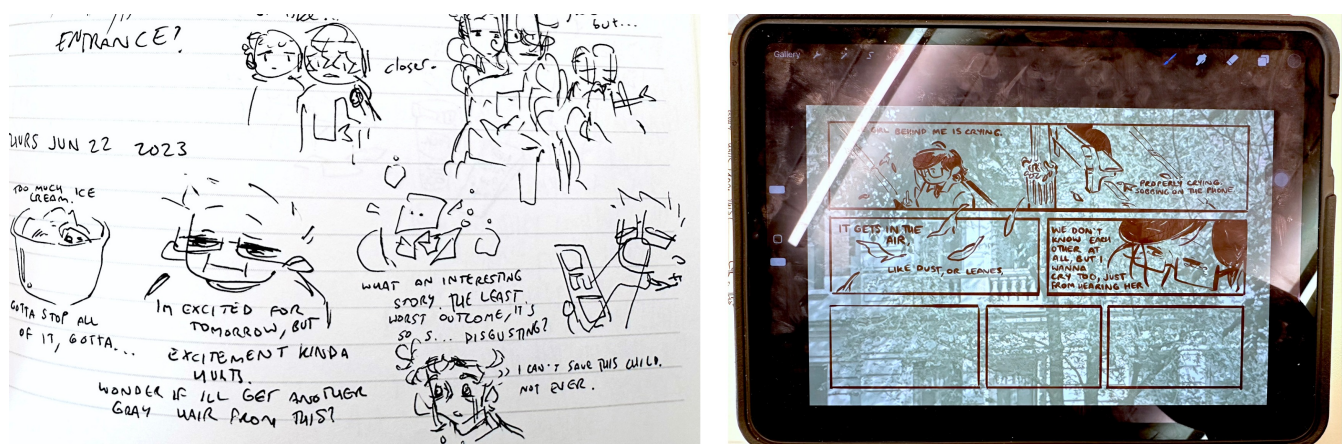 ENTRANCE?
closer.
but...
JUN 22 2023
TOO MUCH ICE
CREAM.
GOTTA STOP ALL
OF IT, GOTTA...
IM EXCITED FOR
TOMORROW, BUT
EXCITEMENT KINDA
HURTS.
WONDER IF ILL GET ANOTHER
GRAY HAIR FROM THIS?
WHAT AN INTERESTING
STORY. THE LEAST
WORST OUTCOME, IT'S
SO S... DISGUSTING?
I CAN'T SAVE THIS CHILD.
NOT EVER.
Gallery
GIRL BEHIND ME IS CRYING.
PROPERLY CRYING.
SOBBING ON THE PHONE.
IT GETS IN THE
AIR,
LIKE DUST, OR LEAVES,
WE DON'T
KNOW EACH
OTHER AT
ALL, BUT I
WANNA
CRY TOO, JUST
FROM HEARING HER